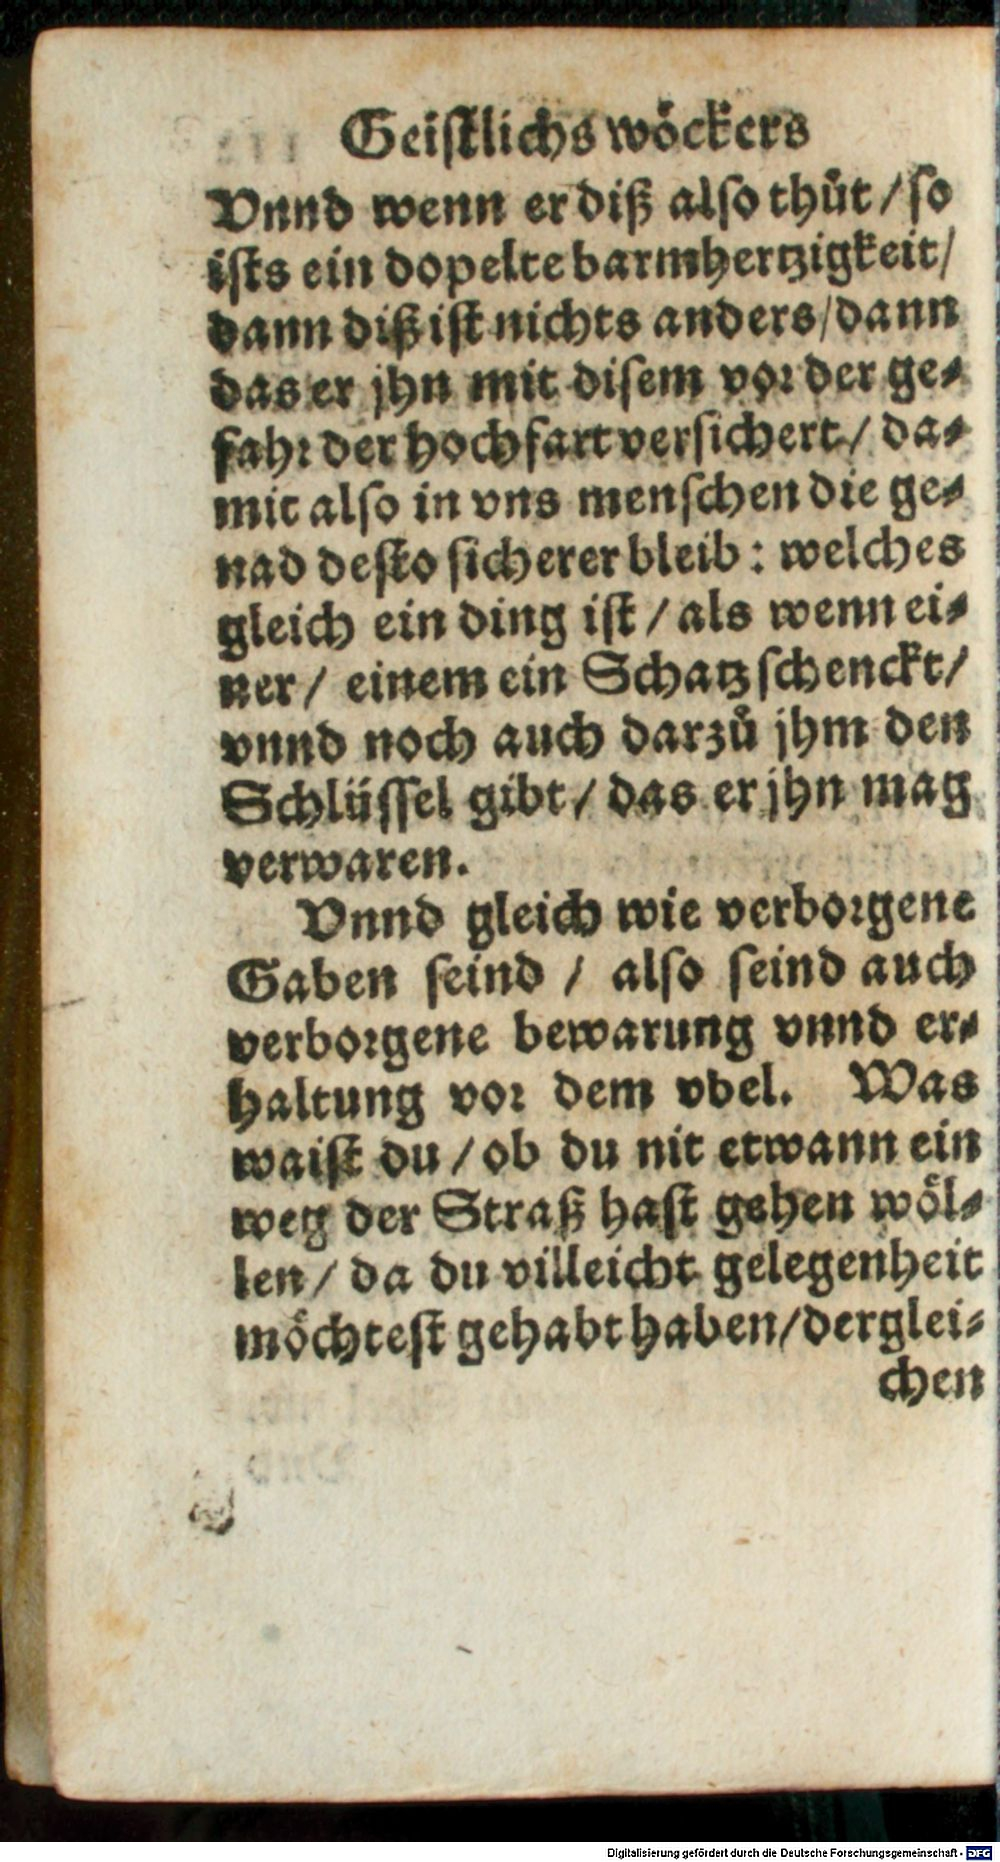 Geistlichs wöckers
Vnnd wenn er diß also thůt / so
ists ein dopelte barmhertzigkeit /
dann diß ist nichts anders / dann
das er jhn mit disem vor der ge-
fahr der hochfart versichert / da-
mit also in vns menschen die ge-
nad desto sicherer bleib : welches
gleich ein ding ist / als wenn ei-
ner / einem ein Schatz schenckt /
vnnd noch auch darzů jhm den
Schlüssel gibt / das er jhn mag
verwaren.
Vnnd gleich wie verborgene
Gaben seind / also seind auch
verborgene bewarung vnnd er-
haltung vor dem vbel. Was
waist du / ob du nit etwann ein
weg der Straß hast gehen wöl-
len / da du villeicht gelegenheit
möchtest gehabt haben / derglei-
chen
Digitalisierung gefördert durch die Deutsche Forschungsgemeinschaft - DFG